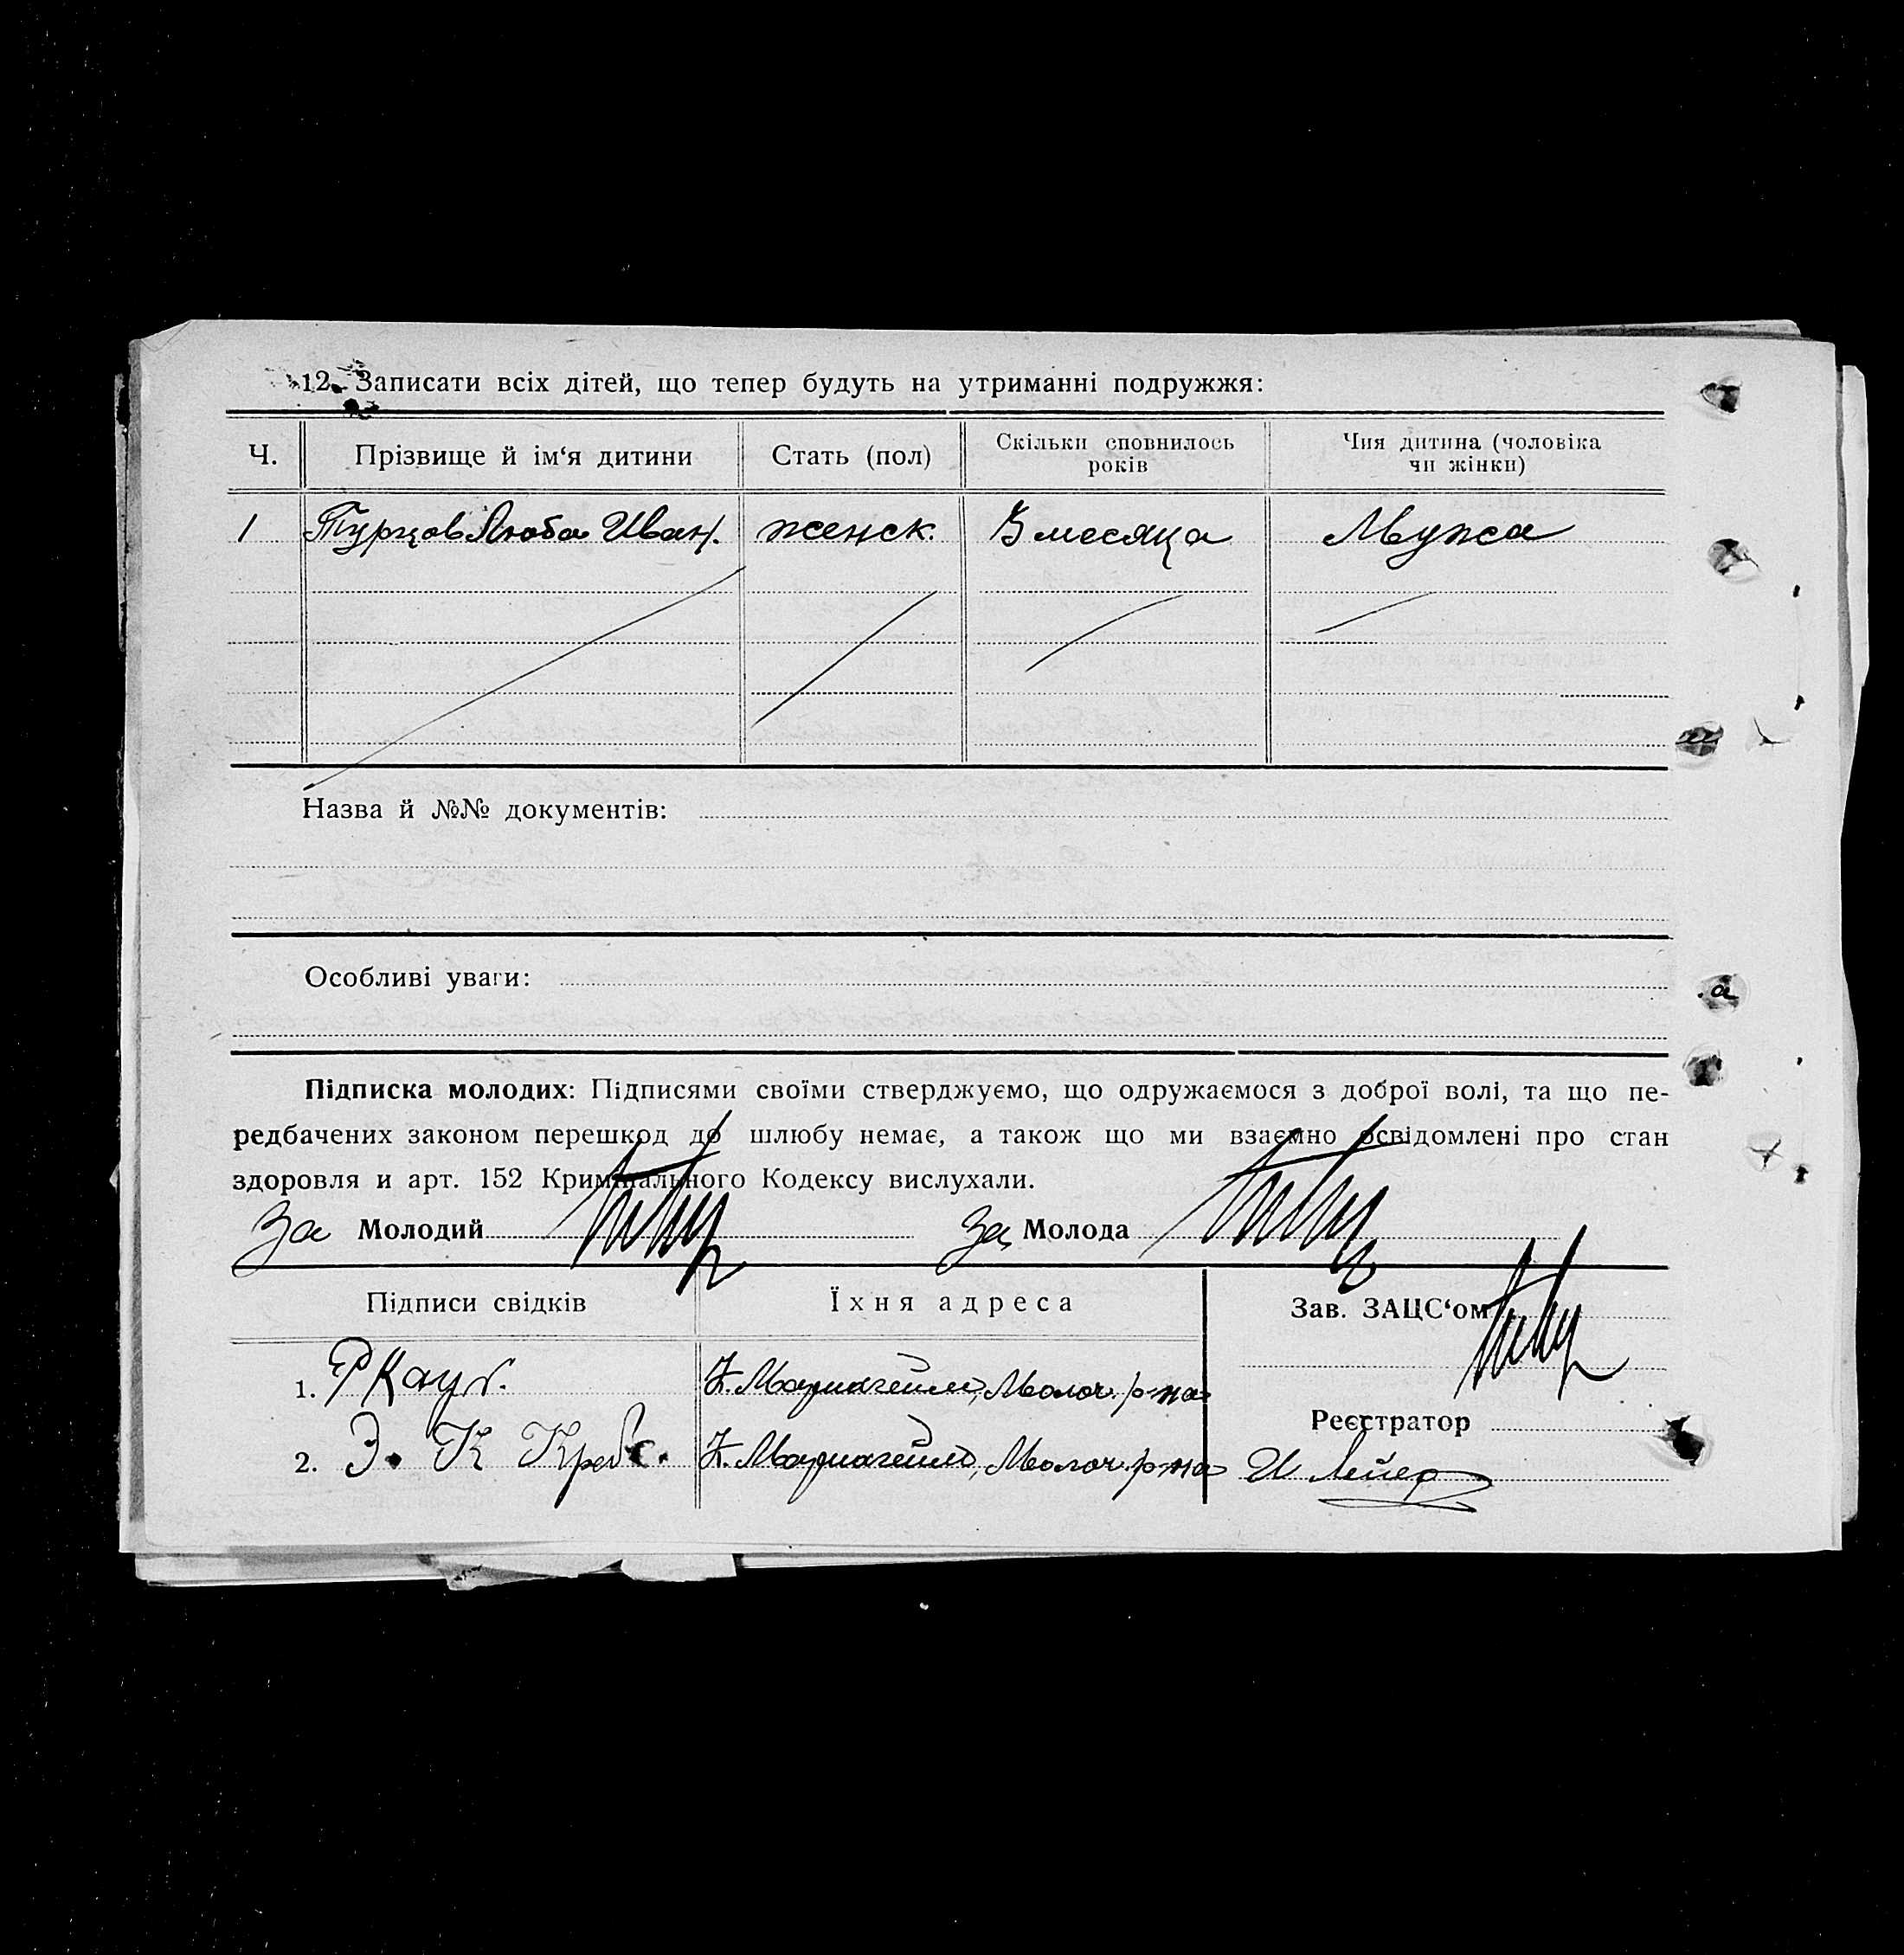 12. Записати всіх дітей, що тепер будуть на утриманні подружжя:
Ч. Прізвище й ім‘я дитини Стать (пол) Скільки сповнилось років Чия дитина (чоловіка чи жінки)
1 Люба Иван. женск. 3 месяца Мужа
Назва й №№ документів:
Особливі уваги:
Підписка молодих: Підписями своїми стверджуємо, що одружаємося з доброї волі, та що пе-
редбачених законом перешкод до шлюбу немає, а також що ми взаємно освідомлені про стан
здоровля и арт. 152 Кримінального Кодексу вислухали.
За Молодий За Молода
Підписи свідків Їхня адреса Зав. ЗАЦС‘ом
1. Молоч. р-на
Реєстратор
2. Э. К Молоч. р-на И Лейер